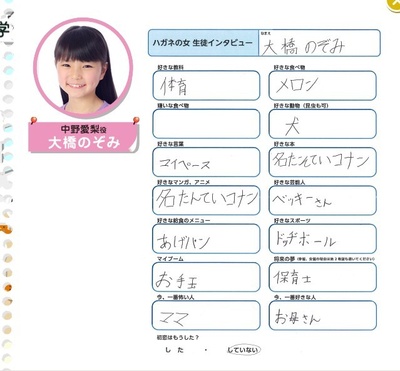 学
ハガネの女 生徒インタビュー
なまえ
大橋のぞみ
中野愛梨役
大橋のぞみ
好きな教科
体育
好きな食べ物
メロン
嫌いな食べ物
好きな動物（昆虫も可）
犬
好きな言葉
マイペース
好きな本
名たんていコナン
好きなマンガ、アニメ
名たんていコナン
好きな芸能人
ベッキーさん
好きな給食のメニュー
あげパン
好きなスポーツ
ドッヂボール
マイブーム
お手玉
将来の夢
保育士
今、一番怖い人
ママ
今、一番好きな人
お母さん
初恋はもうした？
した ・ していない